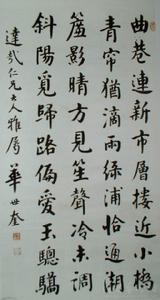 曲巷連新市層樓近小橋
青帘猶滴雨綠浦恰通潮
影晴方見笙聲冷未調
斜陽覓歸路偏愛玉驄驕
達哉仁兄大人雅屬
華世奎